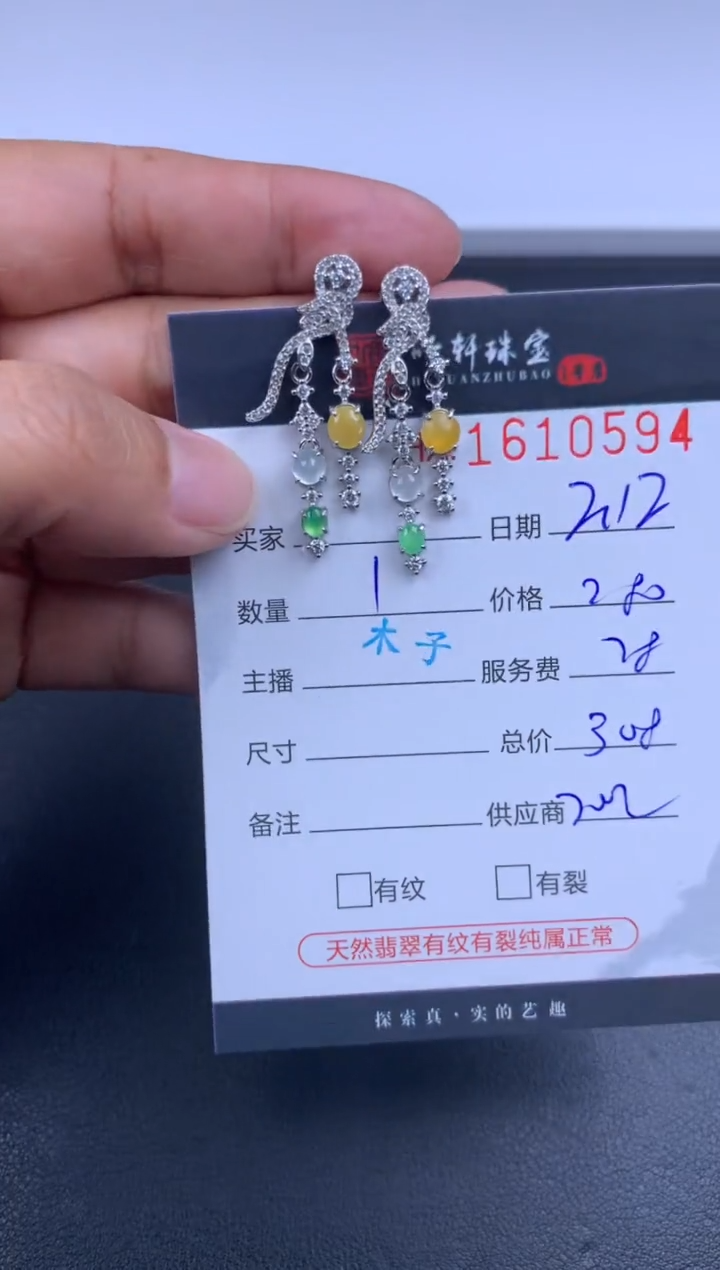 轩珠宝
UANZHUBAO
1610594
买家 日期 2112
数量 1 价格 280
木子
主播 服务费 28
尺寸 总价 308
备注 供应商
有纹 有裂
天然翡翠有纹有裂纯属正常
探索真·实的艺趣